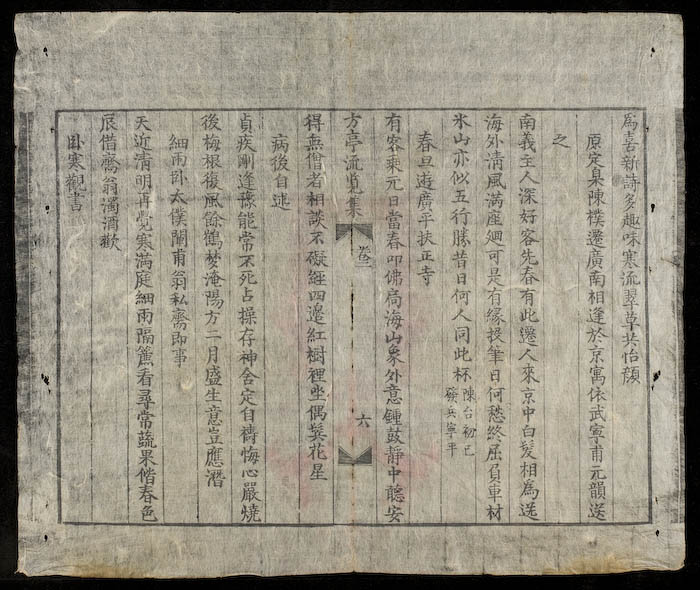 為喜新詩多趣味寒流翠草共怡顏
原定臬陳樸遷廣南相逢於京寓依武寧甫元韻送
之
南義主人深好客先春有此遷人來京中白髮相為送
海外清風滿座廻可是有緣投筆日何愁終屈負車材
氷山亦似五行勝昔日何人同此杯陳台初已
發兵寧平
春旦遊廣平扶正寺
有客乘元日當春叩佛扃海山象外意鍾鼓靜中聽安
方亭流覽集 卷三 六
得無僧者相談不礙經四邊紅樹裡坐偶鬂花星
病後自述
貞疾剛逢豫能常不死占操存神舍定自禱悔心嚴燒
後梅根復風餘鶴梦淹陽方二月盛生意豈應潛
細雨卧太僕闍甫翁私齋即事
天近清明再覺寒滿庭細雨隔簾看尋常蔬果偕春色
辰借齋翁濁酒歡
卧寒觀書